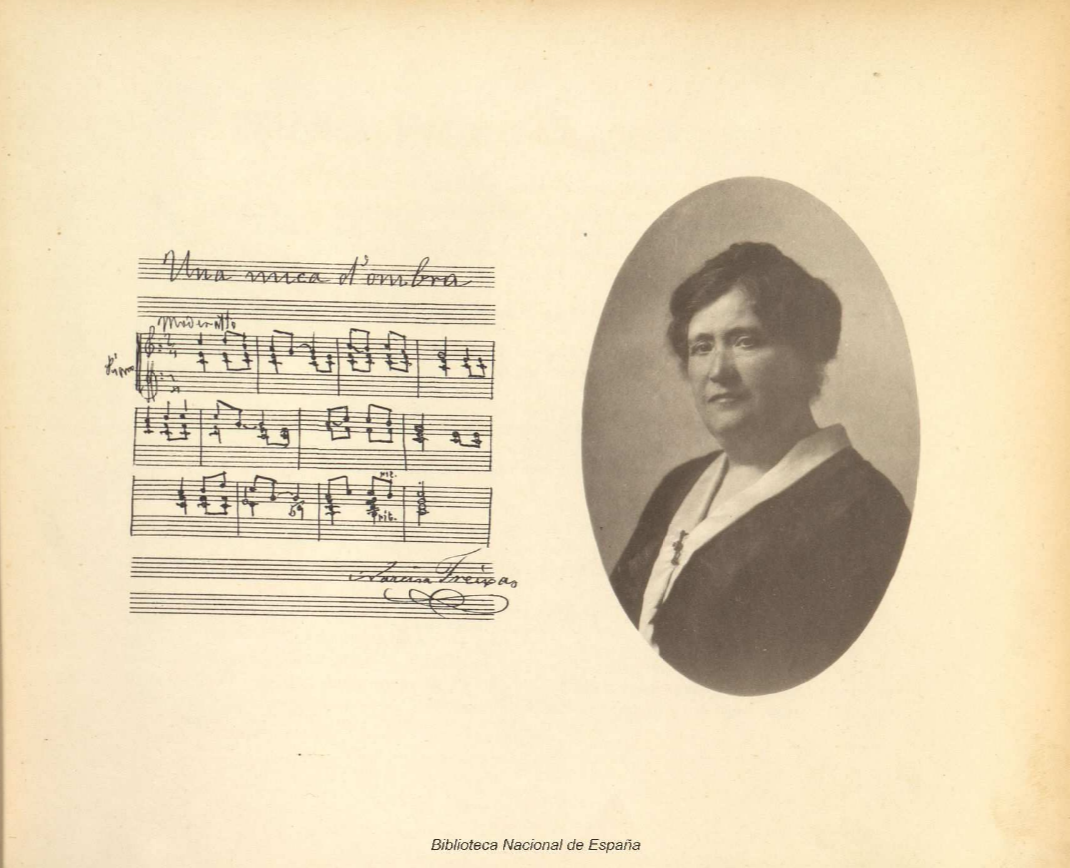 Una mica d'ombra
Moderatto
rit.
Narcisa Freixas
Biblioteca Nacional de España